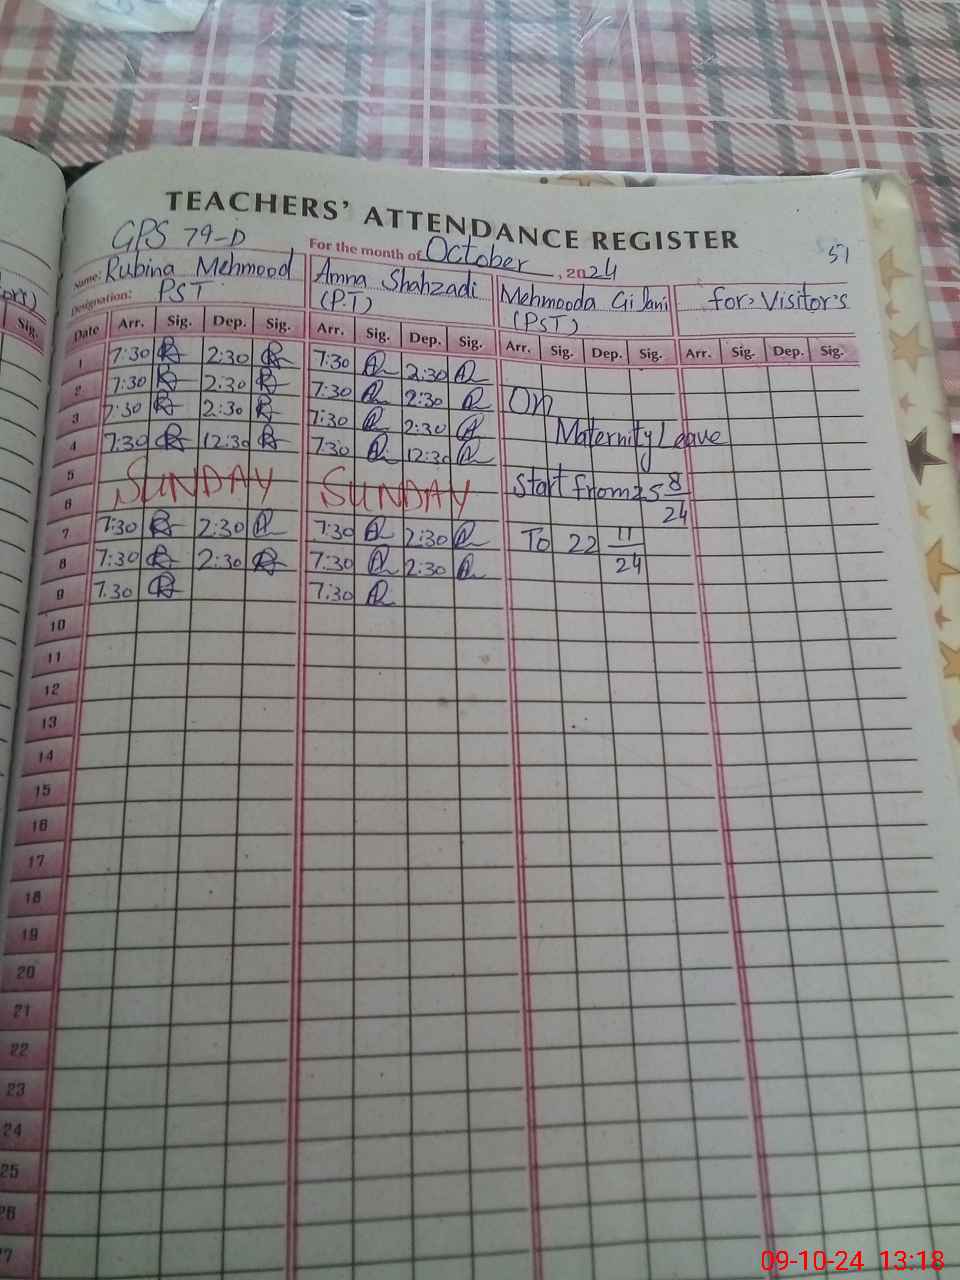 TEACHERS' ATTENDANCE REGISTER
GPS 79-D
For the month of October, 2024
51
Name: Rubina Mehmood
Amna Shahzadi
Mehmooda Gilani
for: Visitor's
Designation: PST
(P.T)
(PST)
Sig.
Date Arr. Sig. Dep. Sig. Arr. Sig. Dep. Sig. Arr. Sig. Dep. Sig. Arr. Sig. Dep. Sig.
1 7:30 2:30 7:30 2:30
2 7:30 2:30 7:30 2:30 On
3 7:30 2:30 7:30 2:30 Maternity Leave
4 7:30 12:30 7:30 12:30
5 SUNDAY SUNDAY Start from 25 8/24
6
7 7:30 2:30 7:30 2:30 To 22 11/24
8 7:30 2:30 7:30 2:30
9 7:30 7:30
10
11
12
13
14
15
16
17
18
19
20
21
22
23
24
25
26
27
09-10-24 13:18